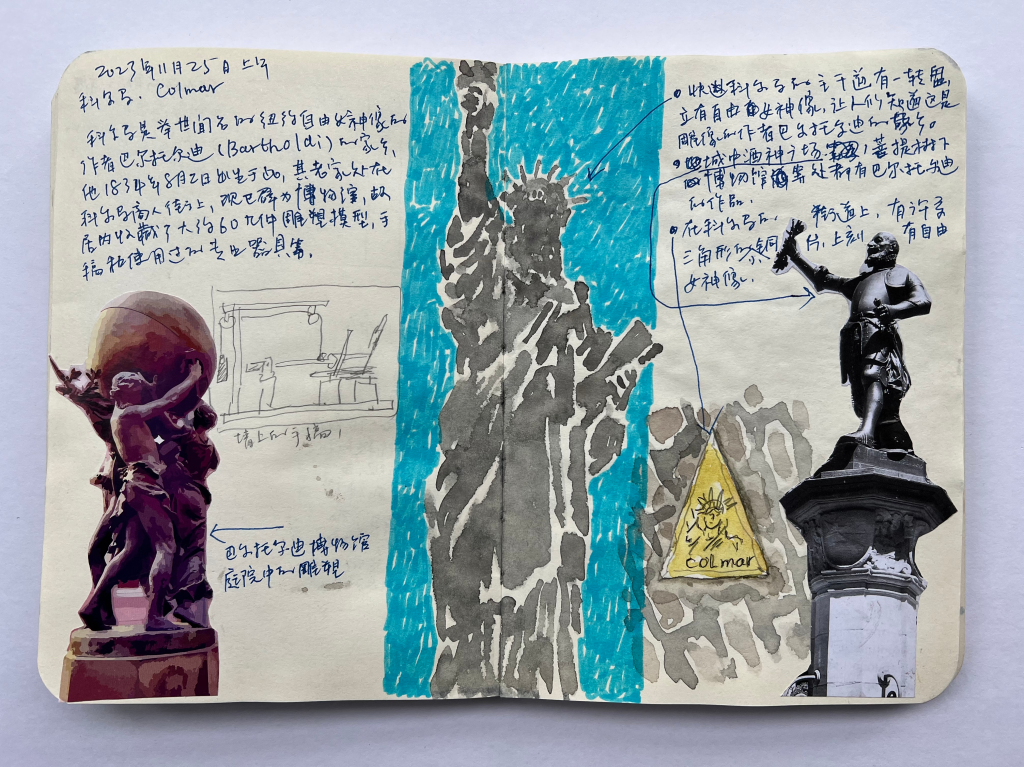 2023年11月25日上午
科尔马. Colmar
科尔马是举世闻名的纽约自由女神像的
作者巴尔托尔迪(Bartholdi)的家乡,
他1834年8月2日出生于此,其老家处在
科尔马商人街上,现已辟为博物馆,故
居内收藏了大约60几件雕塑模型,手
稿和使用过的 器具等.
墙上的手稿,
巴尔托尔迪博物馆
庭院中的雕塑
快进科尔马的主干道有一转盘,
立有自由女神像,让人们知道这是
雕像的作者巴尔托尔迪的故乡。
城中酒神广场 菩提树下
博物馆 等处都有巴尔托尔迪
的作品.
在科尔马的 街道上,有许多
三角形的铜片,上刻有自由
女神像.
COLmar